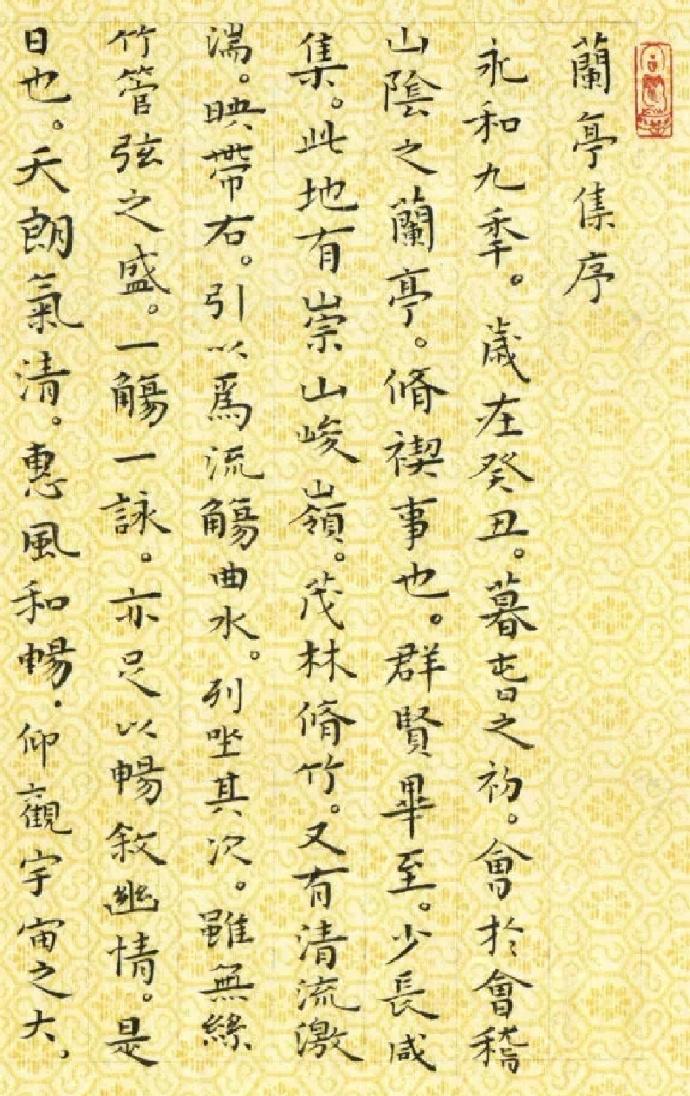 蘭亭集序
永和九秊。歲在癸丑。暮旾之初。會於會稽
山陰之蘭亭。脩禊事也。群賢畢至。少長咸
集。此地有崇山峻嶺。茂林脩竹。又有清流激
湍。映帶右。引以爲流觴曲水。列坐其次。雖無絲
竹管弦之盛。一觴一詠。亦足以暢敘幽情。是
日也。天朗氣清。惠風和暢。仰觀宇宙之大,